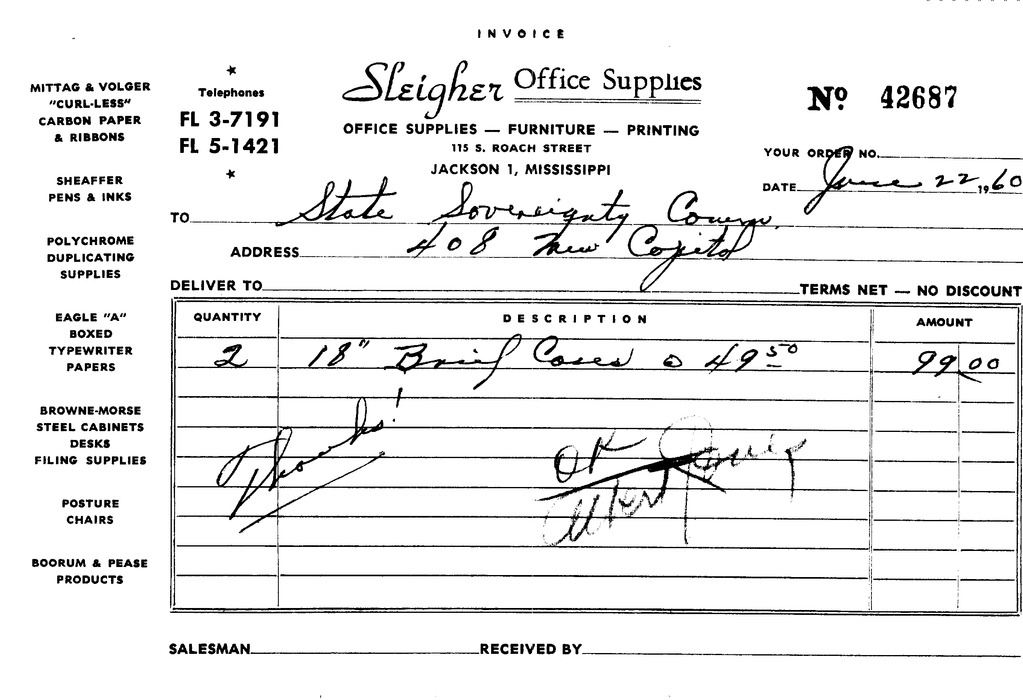 INVOICE
MITTAG & VOLGER
"CURL-LESS"
CARBON PAPER
& RIBBONS
SHEAFFER
PENS & INKS
POLYCHROME
DUPLICATING
SUPPLIES
EAGLE "A"
BOXED
TYPEWRITER
PAPERS
BROWNE-MORSE
STEEL CABINETS
DESKS
FILING SUPPLIES
POSTURE
CHAIRS
BOORUM & PEASE
PRODUCTS
Telephones
FL 3-7191
FL 5-1421
Sleigher Office Supplies
OFFICE SUPPLIES — FURNITURE — PRINTING
115 S. ROACH STREET
JACKSON 1, MISSISSIPPI
Nº 42687
YOUR ORDER NO.
DATE June 22, 1960
TO State Sovereignty Comm.
ADDRESS 408 New Capitol
DELIVER TO TERMS NET — NO DISCOUNT
QUANTITY DESCRIPTION AMOUNT
2 18" Brief Cases @ 49.50 99.00
Thanks!
OK
SALESMAN RECEIVED BY